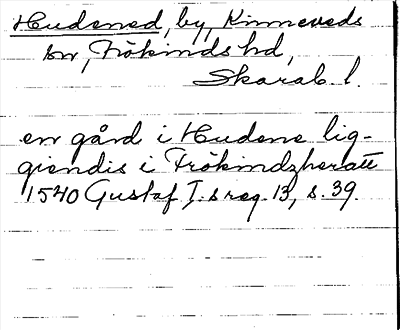 Hudened, by, Kinneveds
sn, Frökinds hd,
Skarab. l.
en gård i Hudene lig-
giendis i Frökindzheratt
1540 Gustaf I:s reg. 13, s. 39.